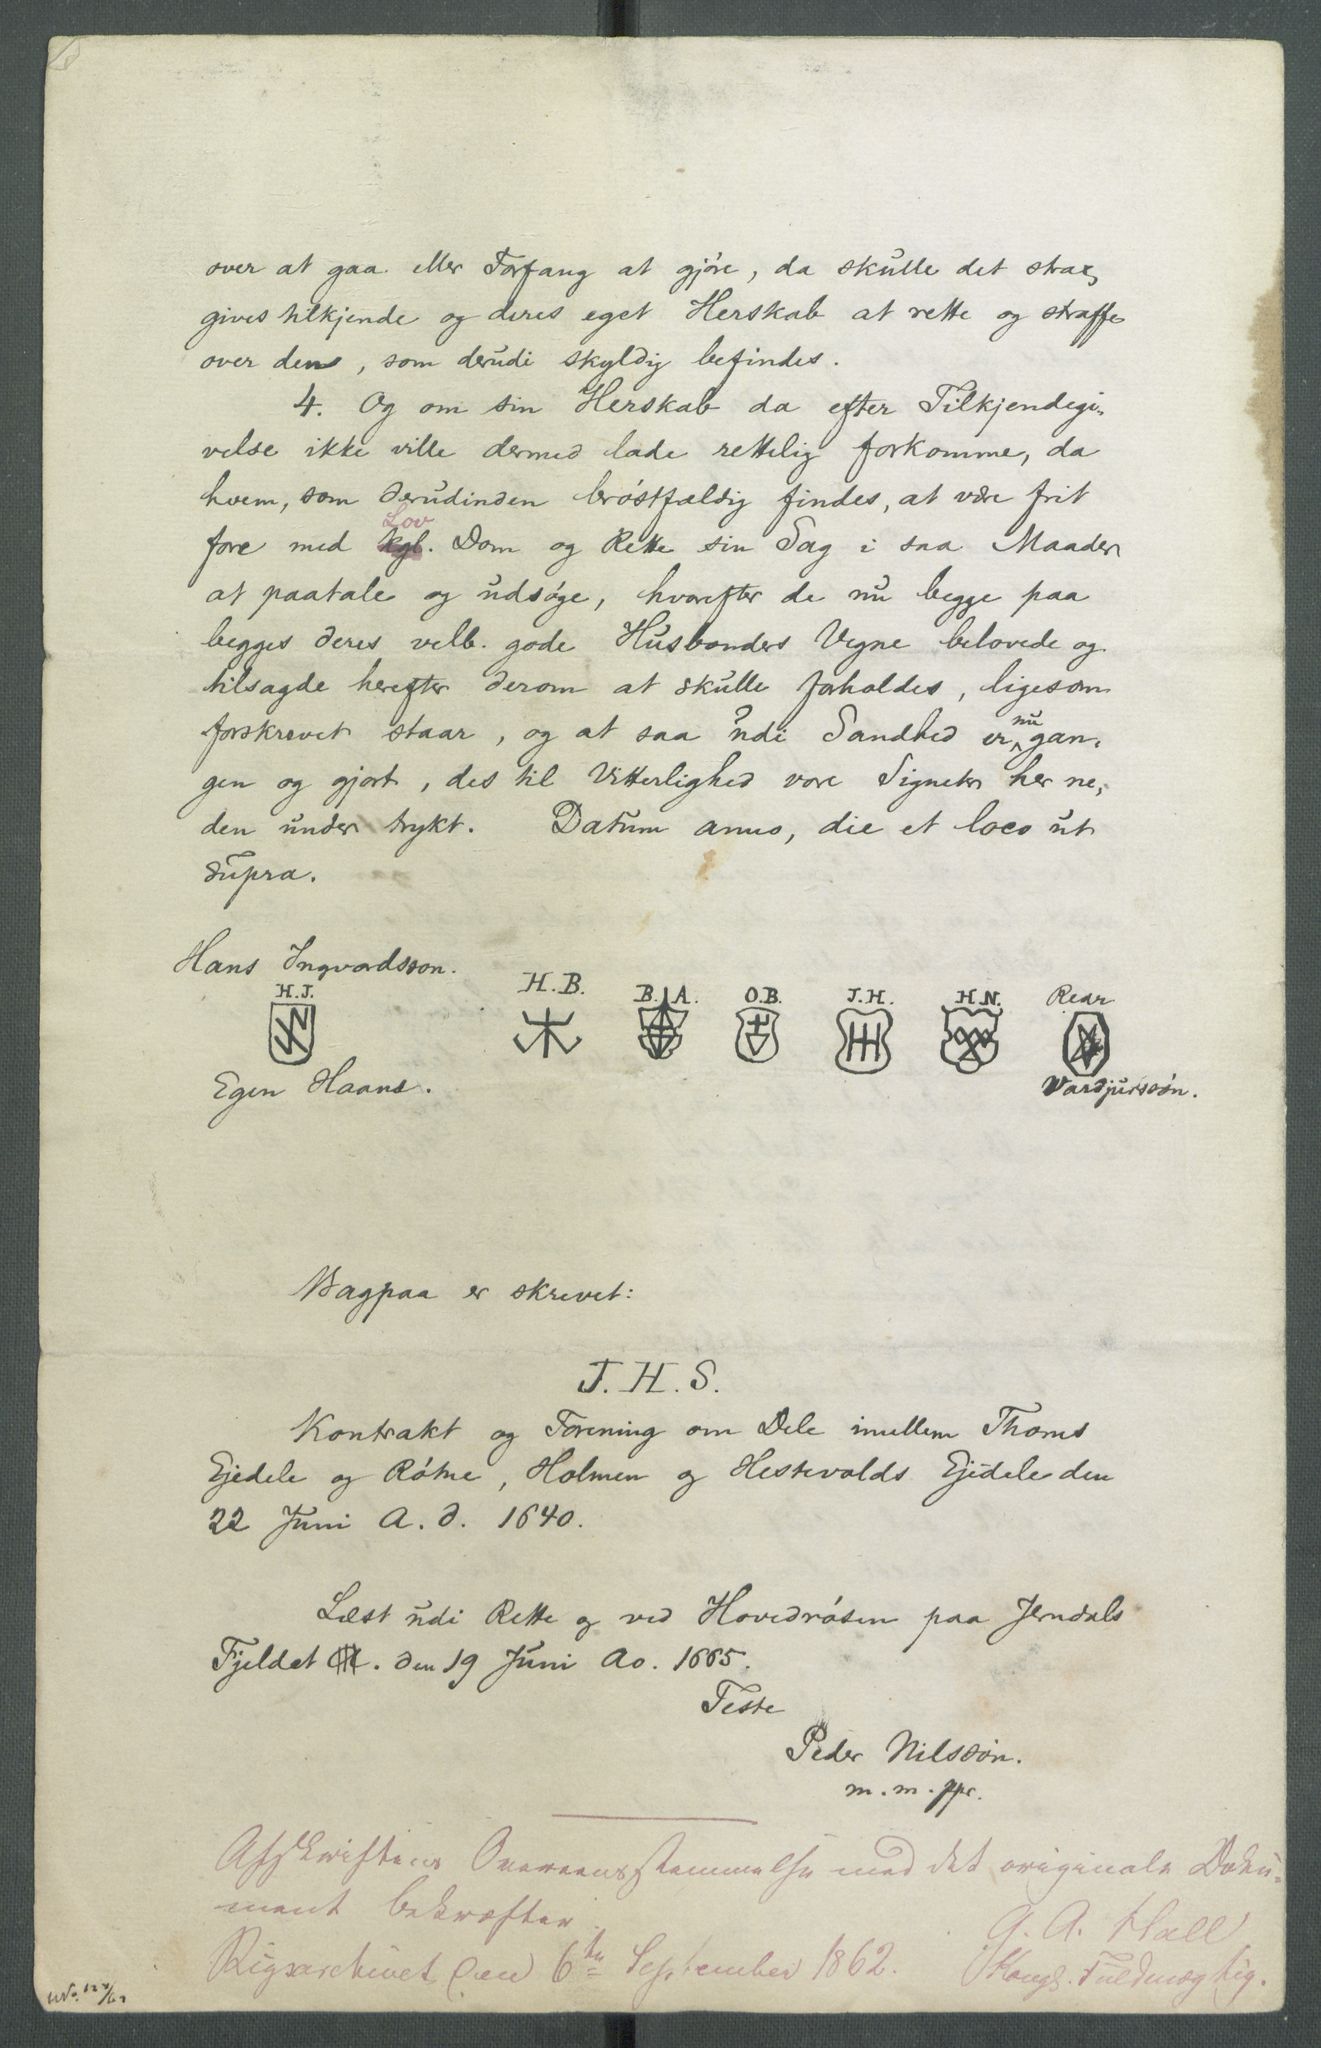 over at gaa eller Forfang at gjöre, da skulle det strax
gives tilkjende og deres eget Herskab at rette og straffe
over dem, som derudi skyldig befindes.
4. Og om sin Herskab da efter Tilkjendegi-
velse ikke ville dermed lade rettelig forkomme, da
hvem, som derudinden bröstfældig findes, at være frit
Lov
fore med kgl. Dom og Rette sin Sag i saa Maader
at paatale og udsöge, hvorefter de nu begge paa
begges deres velb. gode Husbonders Vegne belovede og
tilsagde herefter derom at skulle forholdes, ligesom
forskrevet staar, og at saa udi Sandhed er nu gan-
gen og gjort, des til Vitterlighed vore Signeter her ne-
den under trykt. Datum anno, die et loco ut
supra.
Hans Ingvordsson.
H.J. H.B. B.A. O.B. J.H. H.N. Rear
Egen Haand. Vardjurssön.
Bagpaa er skrevet:
J.H.S.
Kontrakt og Forening om Dele imellem Thoms
Ejedele og Rötne, Holmen og Hestevolds Ejedele den
22 Juni A.d. 1640.
Læst udi Rette og ved Hovedrösen paa Jerndals
Fjeldet den 19 Juni Ao. 1665.
Teste
Peder Nilssön.
m.m.ppr.
Afskriftens Overeensstemmelse med det originale Doku-
ment bekræfter
A. Hall
Rigsarchivet den 6te September 1862. Kongl. Fuldmægtig.